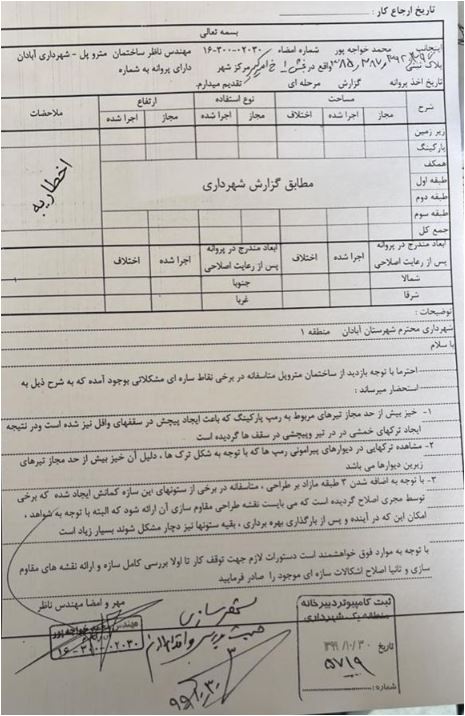 تاریخ ارجاع کار :
بسمه تعالی
اینجانب محمد خواجه پور شماره امضاء ۰۲۰۳۰-۳۰۰-۱۶ مهندس ناظر ساختمان مترو پل - شهرداری آبادان
پلاک ثبتی واقع در بخش ۱ مرکز شهر دارای پروانه به شماره
تاریخ اخذ پروانه گزارش مرحله ای تقدیم میدارم.
شرح مساحت نوع استفاده ارتفاع ملاحضات
مجاز اجرا شده اختلاف مجاز اجرا شده مجاز اجرا شده
زیر زمین
پارکینگ
همکف
طبقه اول
مطابق گزارش شهرداری
اخطاریه
طبقه دوم
طبقه سوم
جمع کل
ابعاد مندرج در پروانه پس از رعایت اصلاحی اجرا شده اختلاف ابعاد مندرج در پروانه پس از رعایت اصلاحی اجرا شده اختلاف
شمالا جنوبا
شرقا غربا
توضیحات :
شهرداری محترم شهرستان آبادان منطقه ۱
با سلام
احترما با توجه بازدید از ساختمان متروپل متاسفانه در برخی نقاط سازه ای مشکلاتی بوجود آمده که به شرح ذیل به
استحضار میرساند :
۱- خیز بیش از حد مجاز تیرهای مربوط به رمپ پارکینگ که باعث ایجاد پیچش در سقفهای وافل نیز شده است ودر نتیجه
ایجاد ترکهای خمشی در در تیر وپیچشی در سقف ها گردیده است .
۲- مشاهده ترکهایی در دیوارهای پیرامونی رمپ ها که با توجه به شکل ترک ها ، دلیل آن خیز بیش از حد مجاز تیرهای
زیرین دیوارها می باشد
۳- با توجه به اضافه شدن ۳ طبقه مازاد بر طراحی ، متاسفانه در برخی از ستونهای این سازه کمانش ایجاد شده که برخی
توسط مجری اصلاح گردیده است که می بایست نقشه طراحی مقاوم سازی آن ارائه شود که البته با توجه به شواهد ،
امکان این که در آینده و پس از بارگذاری بهره برداری ، بقیه ستونها نیز دچار مشکل شوند بسیار زیاد است
با توجه به موارد فوق خواهشمند است دستورات لازم جهت توقف کار تا اولا بررسی کامل سازه و ارائه نقشه های مقاوم
سازی و ثانیا اصلاح اشکالات سازه ای موجود را صادر فرمایید
مهر و امضا مهندس ناظر
خواجه پور
۱۶-۳۰۰-۰۲۰۳۰
شهرسازی
۹۹/۱۰/۳۰
ثبت کامپیوتر دبیرخانه
منطقه یک شهرداری
تاریخ ۱۳۹۹/۱۰/۳۰
۵۷۱۹
شماره: